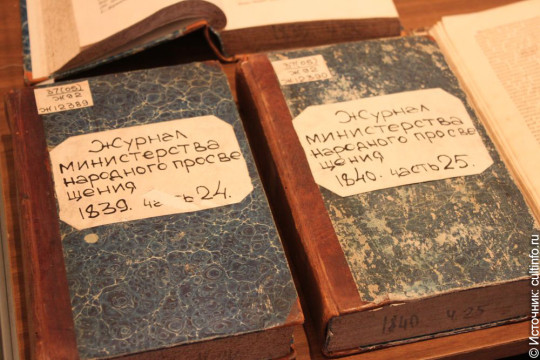 37(05)
Ж92
Ж12389
Журнал
министерства
народного просве
щения
1839. часть 24.
37(05)
Ж92
Ж12390
Журнал
министерства
народного просве
щения
1840. часть 25.
1840. ч. 25
© Источник: cultinfo.ru